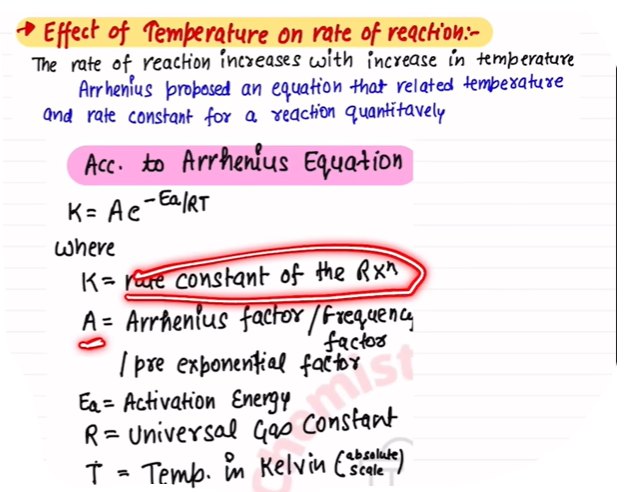 → Effect of Temperature on rate of reaction:-
The rate of reaction increases with increase in temperature
Arrhenius proposed an equation that related temperature
and rate constant for a reaction quantitavely
Acc. to Arrhenius Equation
K = Ae^-Ea/RT
where
K = rate constant of the Rxn
A = Arrhenius factor / Frequency
factor
/ pre exponential factor
Ea = Activation Energy
R = Universal Gas Constant
T = Temp. in Kelvin (absolute scale)